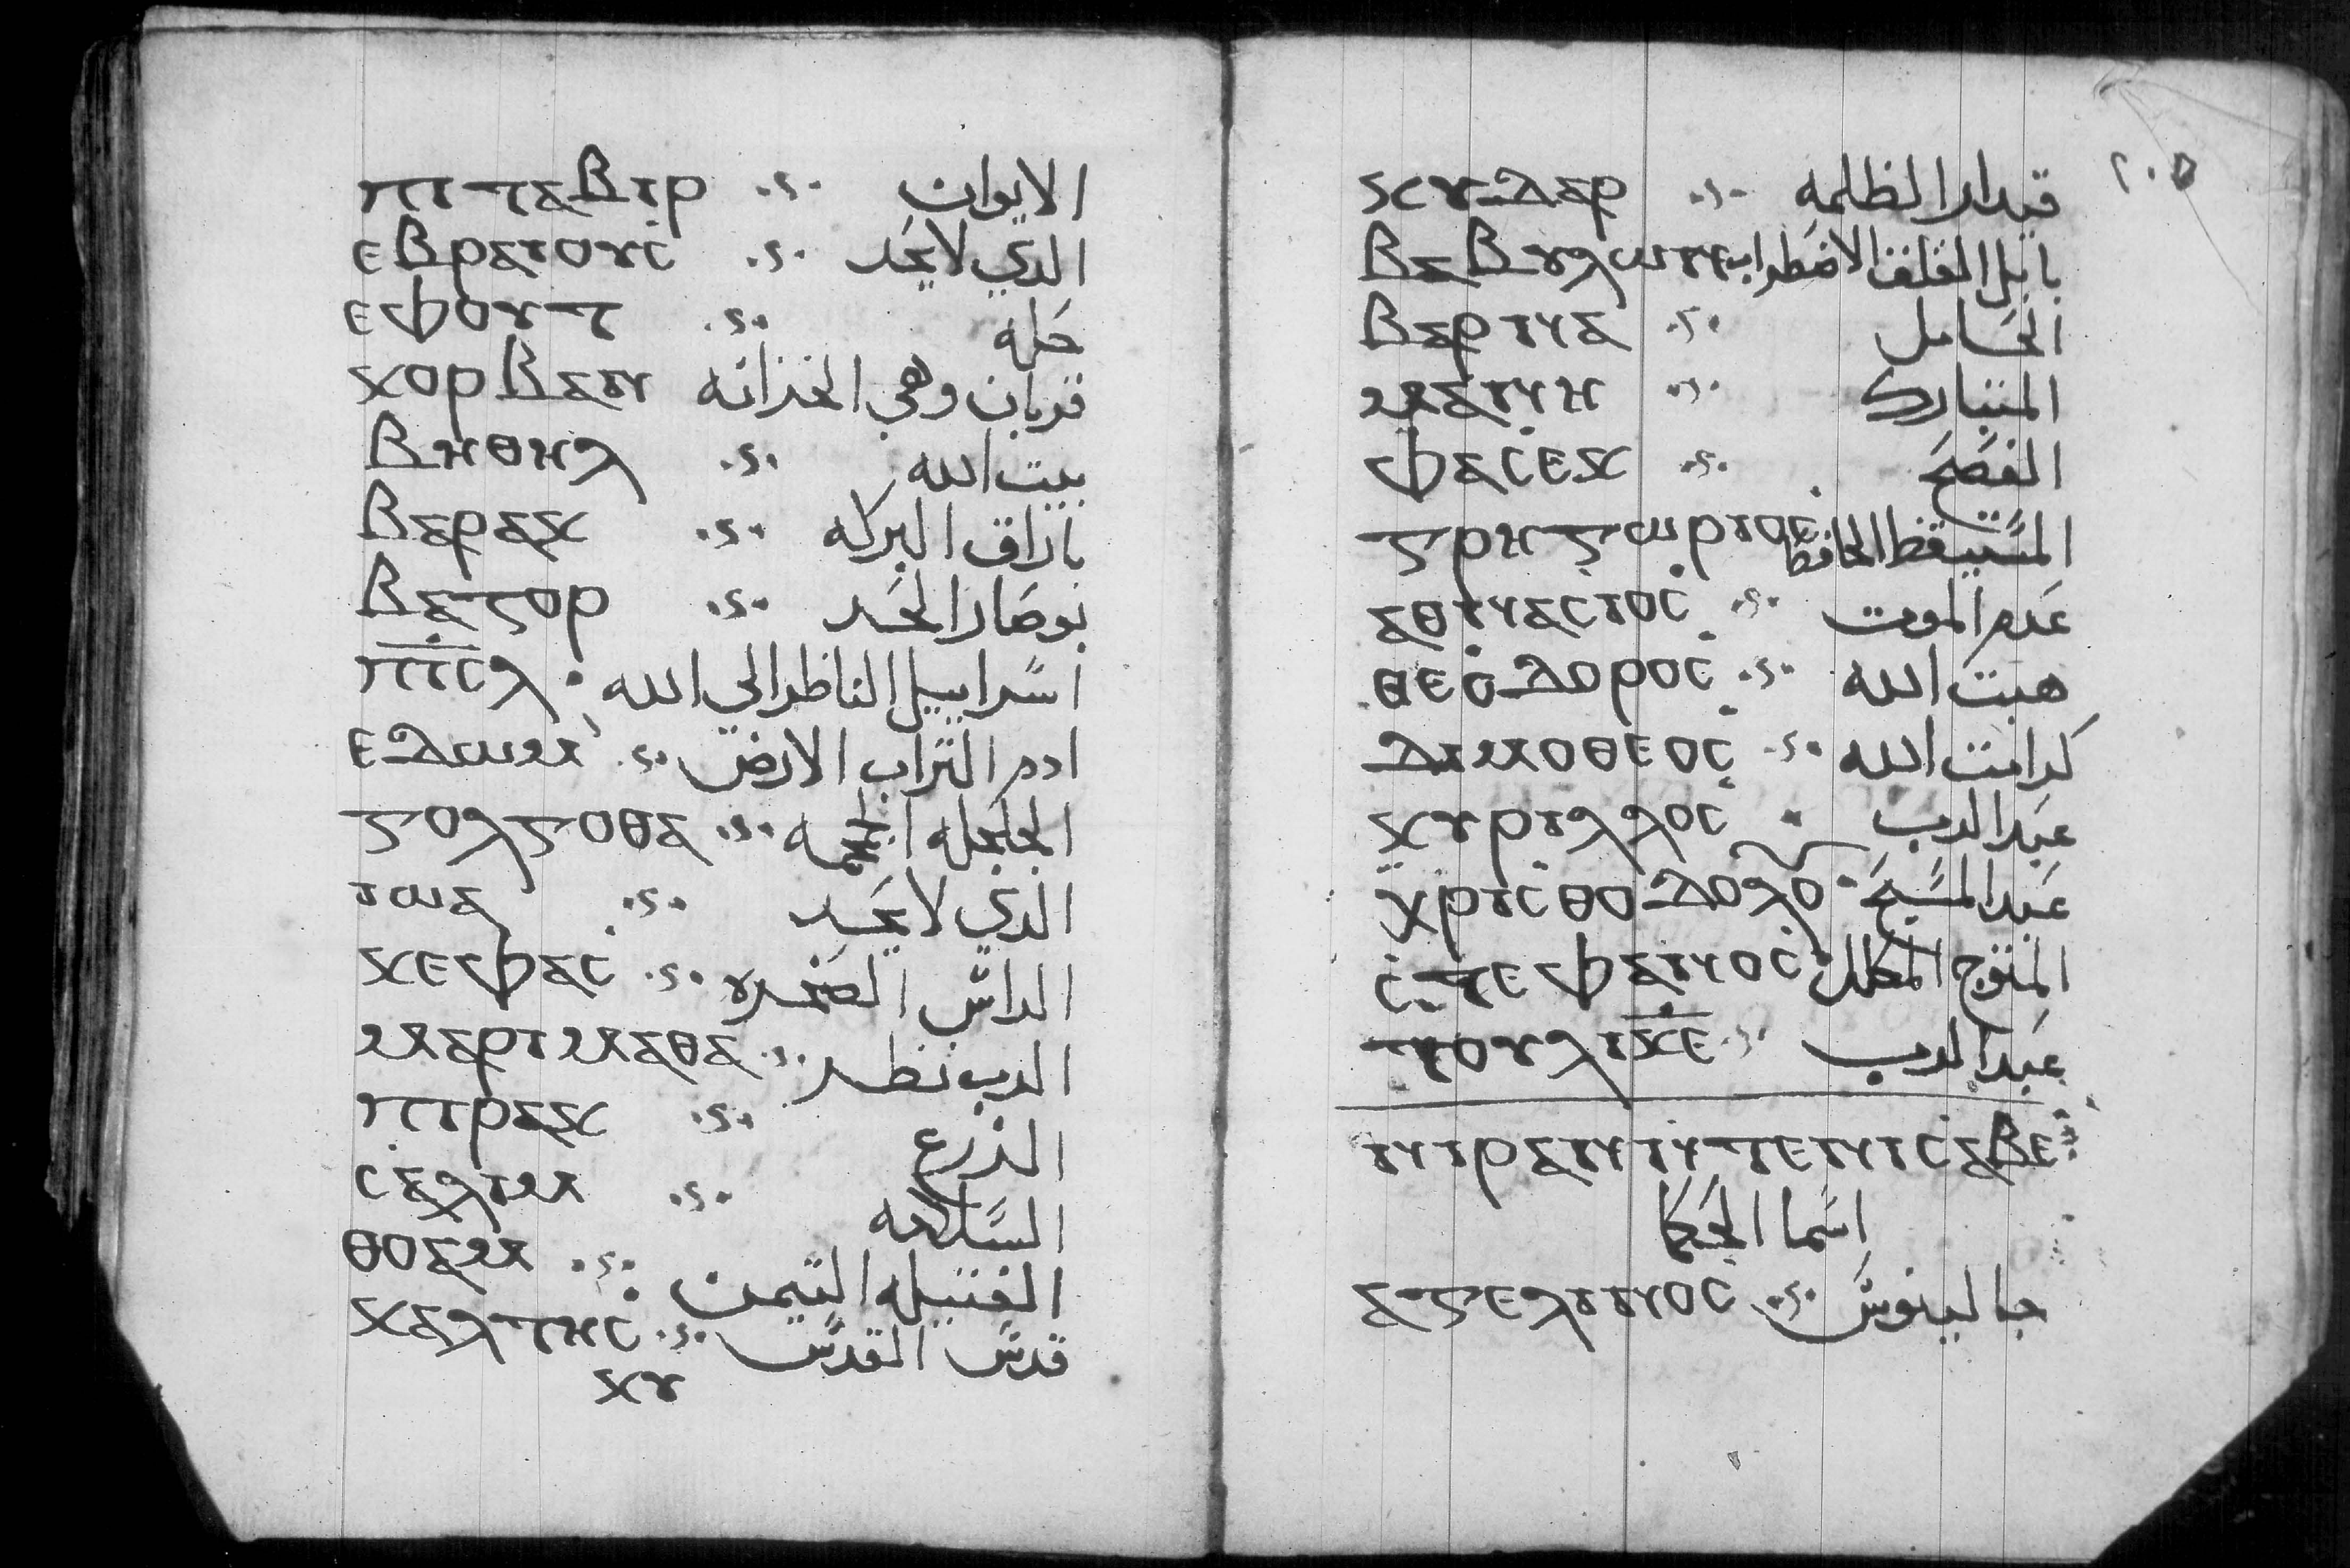 ⲡⲓⲧⲁⲃⲓⲣ الايوان
ⲉⲃⲣⲁⲓⲟⲩⲥ الذي لا يحد
ⲉⲫⲟⲩⲧ حله
ⲕⲟⲣⲃⲁⲛ قربان وهي الخزانه
ⲃⲏⲑⲏⲗ بيت الله
ⲃⲁⲣⲁⲕ باراق البركه
ⲃⲁⲥⲟⲣ بوصار الحد
ⲡⲓⲥⲗ اسراييل الناظر الي الله
ⲉⲇⲱⲙ ادم التراب الارض
ⲅⲟⲗⲅⲟⲑⲁ الجلجله
ⲓⲱⲁ الذي لا يحد
ⲕⲉⲫⲁⲥ الراس الصخره
ⲙⲁⲣⲓⲙⲁⲑⲁ الرب نظر
ⲡⲓⲣⲁⲕ الذرع
ⲥⲁⲗⲓⲙ السلامه
ⲑⲟⲁⲙ القبيله التيمن
ⲕⲁⲗⲧⲏⲥ قدس القدس
ⲕⲩ
٢٠٥
ⲕⲩⲇⲁⲣ قيدار الظلمه
ⲃⲁⲃⲩⲗⲱⲛ بابل القلق الاضطراب
ⲃⲁⲣⲓⲛⲁ الحامل
ⲙⲁⲓⲛⲏ المتبارك
ⲫⲁⲥⲉⲕ الفصح
ⲅⲣⲏⲅⲱⲣⲓⲟⲥ المستيقظ الحافظ
ⲁⲑⲁⲛⲁⲥⲓⲟⲥ عدم الموت
ⲑⲉⲟⲇⲟⲣⲟⲥ هبت الله
ⲇⲓⲙⲟⲑⲉⲟⲥ كرامت الله
ⲕⲩⲣⲓⲗⲗⲟⲥ عبد الرب
ⲭⲣⲓⲥⲑⲟⲇⲟⲗⲟ عبد المسيح
ⲥⲧⲉⲫⲁⲛⲟⲥ المتوج المكلل
ⲧⲟⲩⲗⲓⲕⲉ عبد الرب
ⲛⲓⲣⲁⲛ ⲛⲧⲉⲛⲓⲥⲁⲃⲉ
اسما الحكما
ⲅⲁⲗⲉⲓⲛⲟⲥ جالينوس